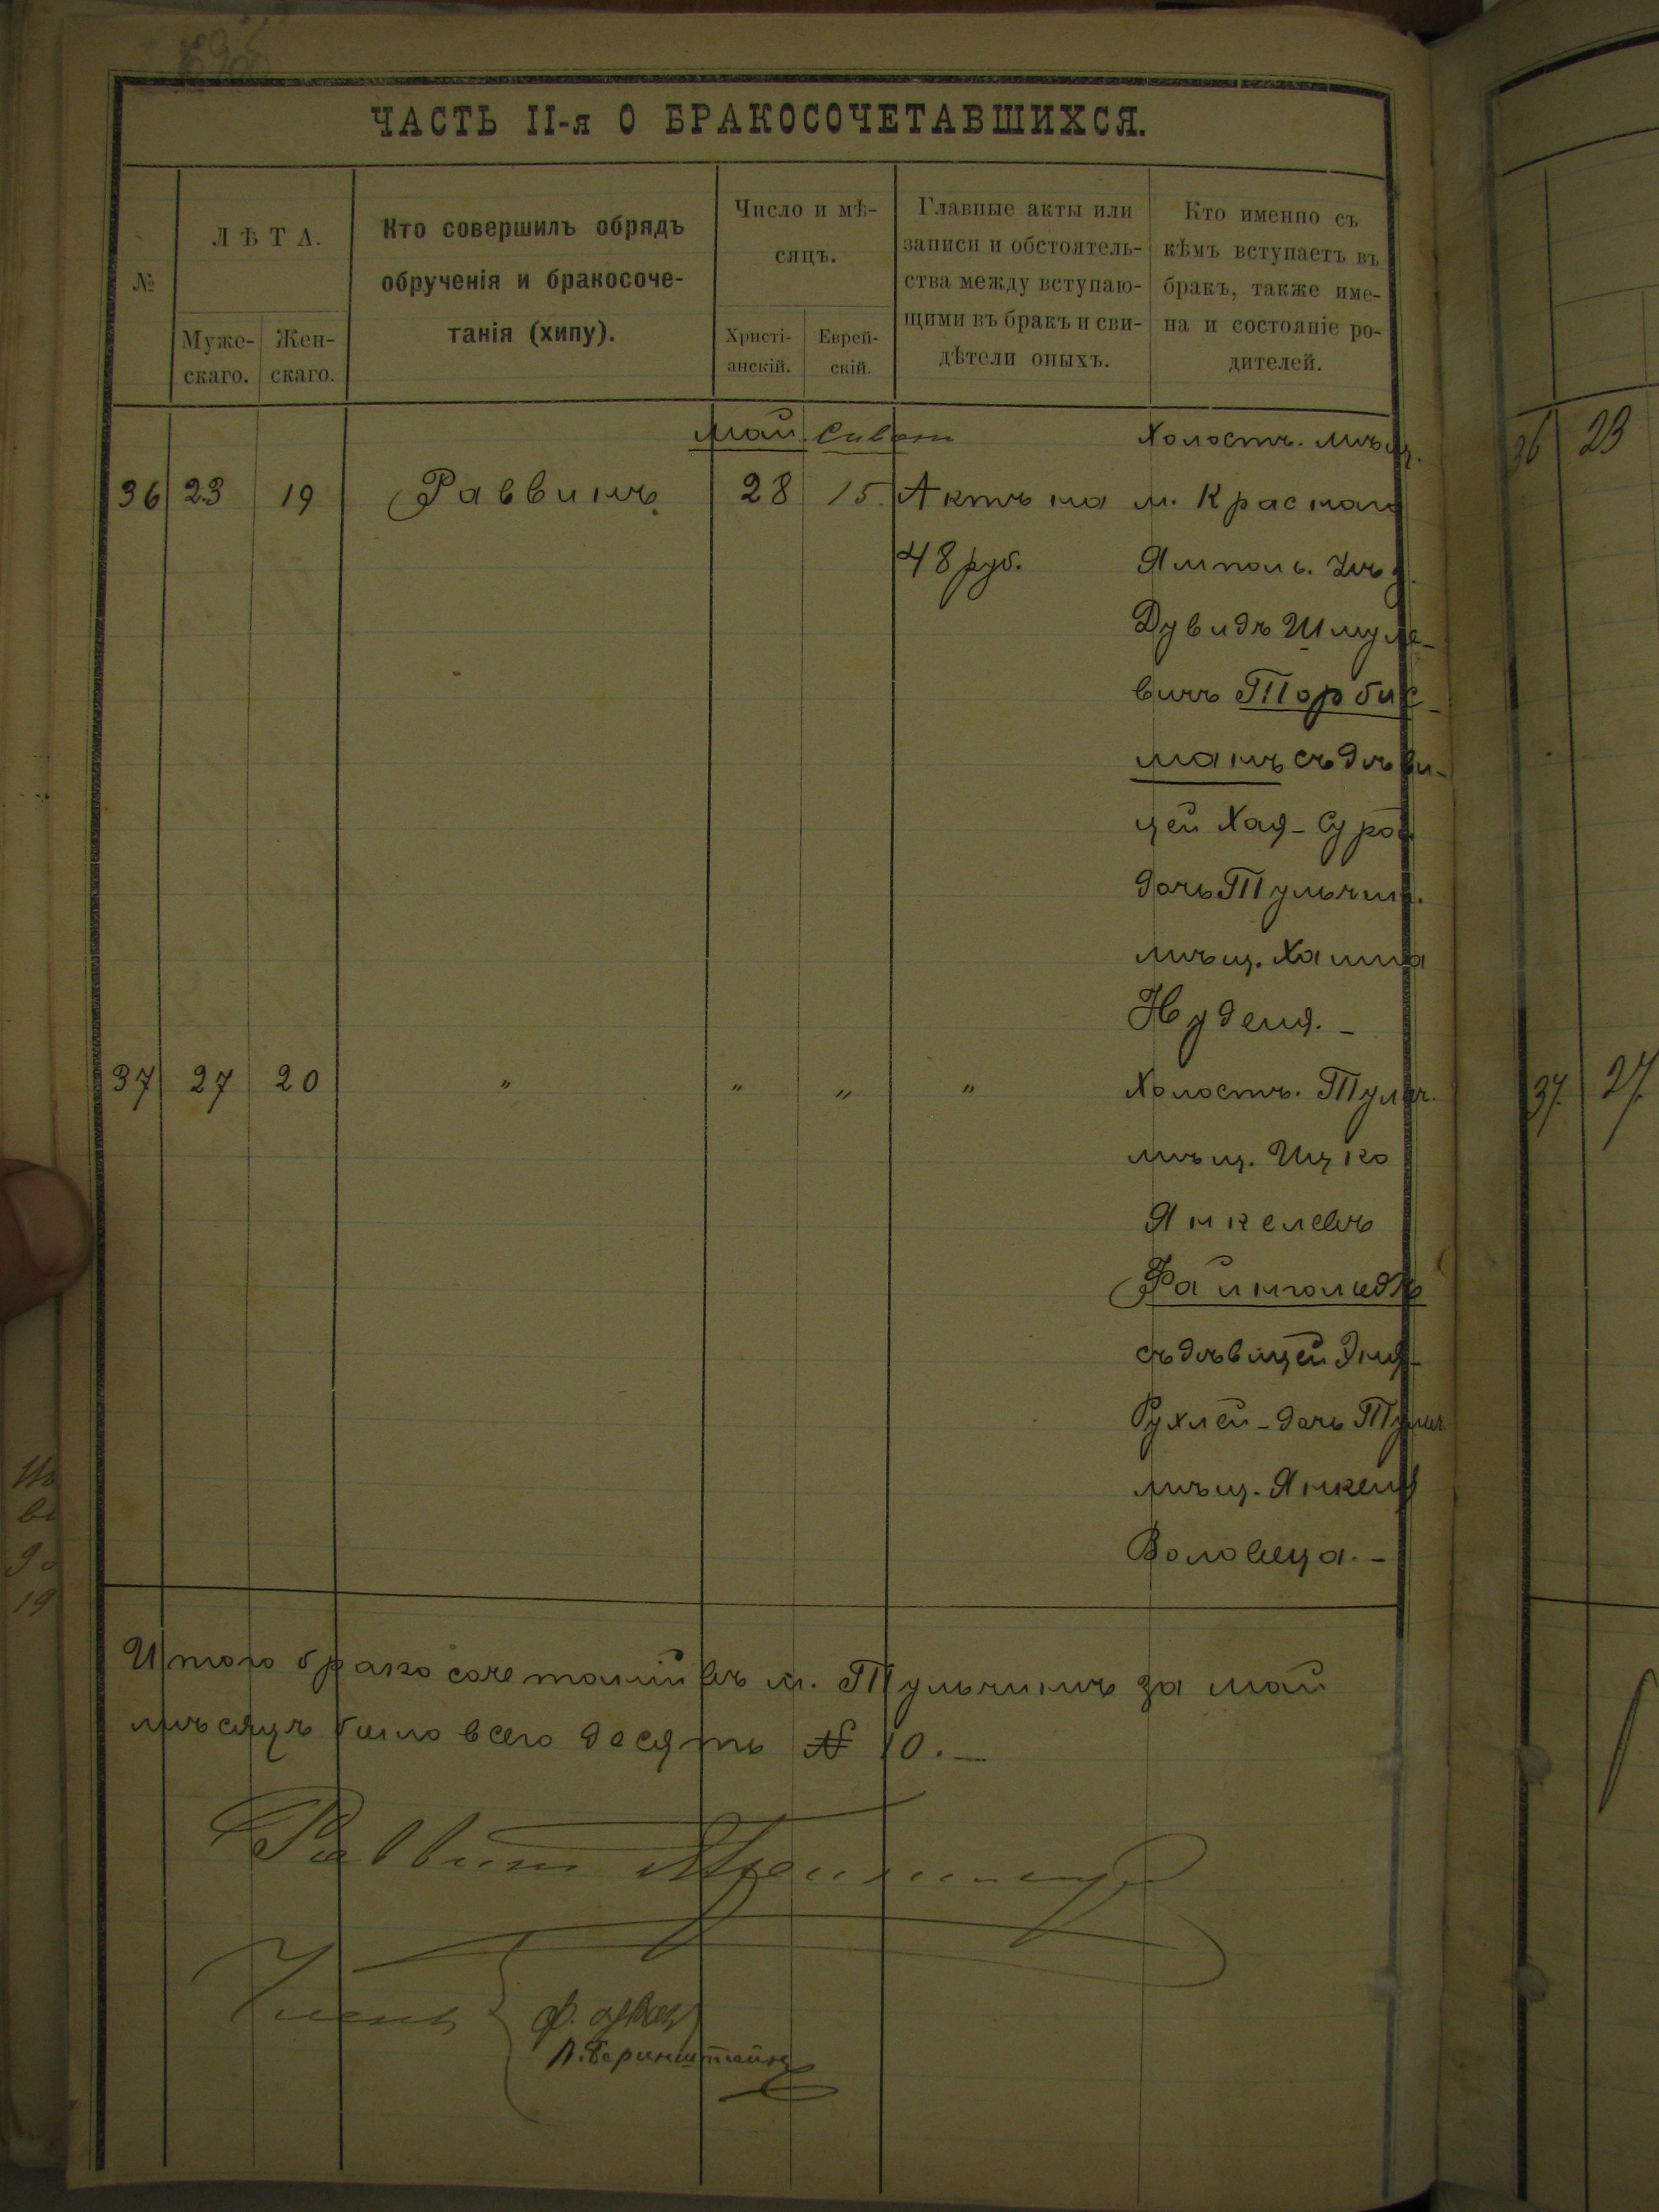 ЧАСТЬ II-я О БРАКОСОЧЕТАВШИХСЯ.
№
ЛѢТА.
Муже-
скаго.
Жен-
скаго.
Кто совершилъ обрядъ
обрученія и бракосоче-
танія (хипу).
Число и мѣ-
сяцъ.
Христі-
анскій.
Еврей-
скій.
Главные акты или
записи и обстоятель-
ства между вступаю-
щими въ бракъ и сви-
дѣтели оныхъ.
Кто именно съ
кѣмъ вступаетъ въ
бракъ, также име-
на и состояніе ро-
дителей.
Май Сивон Холостъ. мѣщ.
36 23 19 Раввинъ 28 15. Актъ на м. Красного
48 руб. Ямполь. Уѣз.
Дувидъ Шмуле-
вичъ Торбис-
манъ съ дѣви-
цей Хая-Сурой
дочь Тульчин.
мѣщ. Хаима
Нуделя. -
37 27 20 " " " " Холостъ. Тульч.
мѣщ. Ицко
Янкелевъ
Файнгольдъ
съ дѣвицей Эня-
Рухлей-дочь Тульч.
мѣщ. Янкеля
Воловеца. -
Итого бракосочетаній въ м. Тульчинѣ за май
мѣсяцъ было всего десять № 10. —
Раввинъ
Члены
Л. Беринштейнъ
36 23
37. 27.